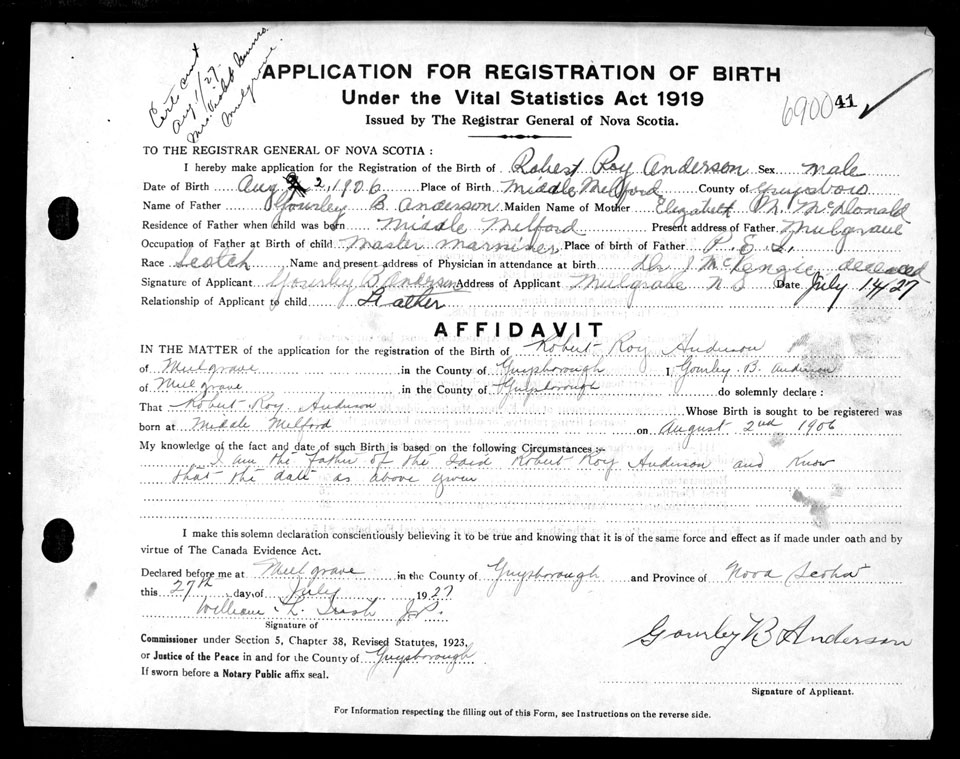 Cert sent
Aug 1/27.
Mrs. Violet Munro
Mulgrave.
APPLICATION FOR REGISTRATION OF BIRTH
Under the Vital Statistics Act 1919
Issued by The Registrar General of Nova Scotia.
690041
TO THE REGISTRAR GENERAL OF NOVA SCOTIA :
I hereby make application for the Registration of the Birth of Robert Roy Anderson Sex male
Date of Birth Aug 2, 1906 Place of Birth Middle Melford County of Guysboro
Name of Father Gourley B. Anderson Maiden Name of Mother Elizabeth M. McDonald
Residence of Father when child was born Middle Melford Present address of Father Mulgrave
Occupation of Father at Birth of child Master Mariner Place of birth of Father P. E. I.
Race Scotch Name and present address of Physician in attendance at birth Dr. J McKenzie deceased
Signature of Applicant Gourley B Anderson Address of Applicant Mulgrave N S Date July 14/27
Relationship of Applicant to child Father
AFFIDAVIT
IN THE MATTER of the application for the registration of the Birth of Robert Roy Anderson
of Mulgrave in the County of Guysborough I, Gourley B. Anderson
of Mulgrave in the County of Guysborough do solemnly declare :
That Robert Roy Anderson Whose Birth is sought to be registered was
born at Middle Melford on August 2nd 1906
My knowledge of the fact and date of such Birth is based on the following Circumstances :-
I am the father of the said Robert Roy Anderson and know
that the date as above given
I make this solemn declaration conscientiously believing it to be true and knowing that it is of the same force and effect as if made under oath and by
virtue of The Canada Evidence Act.
Declared before me at Mulgrave in the County of Guysborough and Province of Nova Scotia
this 27th day of July 1927
William H. Irish J.P.
Signature of
Commissioner under Section 5, Chapter 38, Revised Statutes, 1923,
or Justice of the Peace in and for the County of Guysborough
If sworn before a Notary Public affix seal.
Gourley B Anderson
Signature of Applicant.
For Information respecting the filling out of this Form, see Instructions on the reverse side.